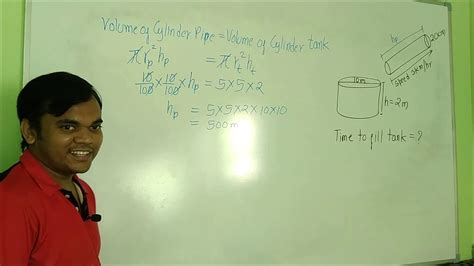 Volume of Cylinder Pipe = Volume of Cylinder tank
π r_p² h_p = π r_t² h_t
10/100 × 10/100 × h_p = 5×5×2
h_p = 5×5×2×10×10
= 500m
h_p
20cm
speed 3km/hr
10m
h=2m
Time to fill tank = ?